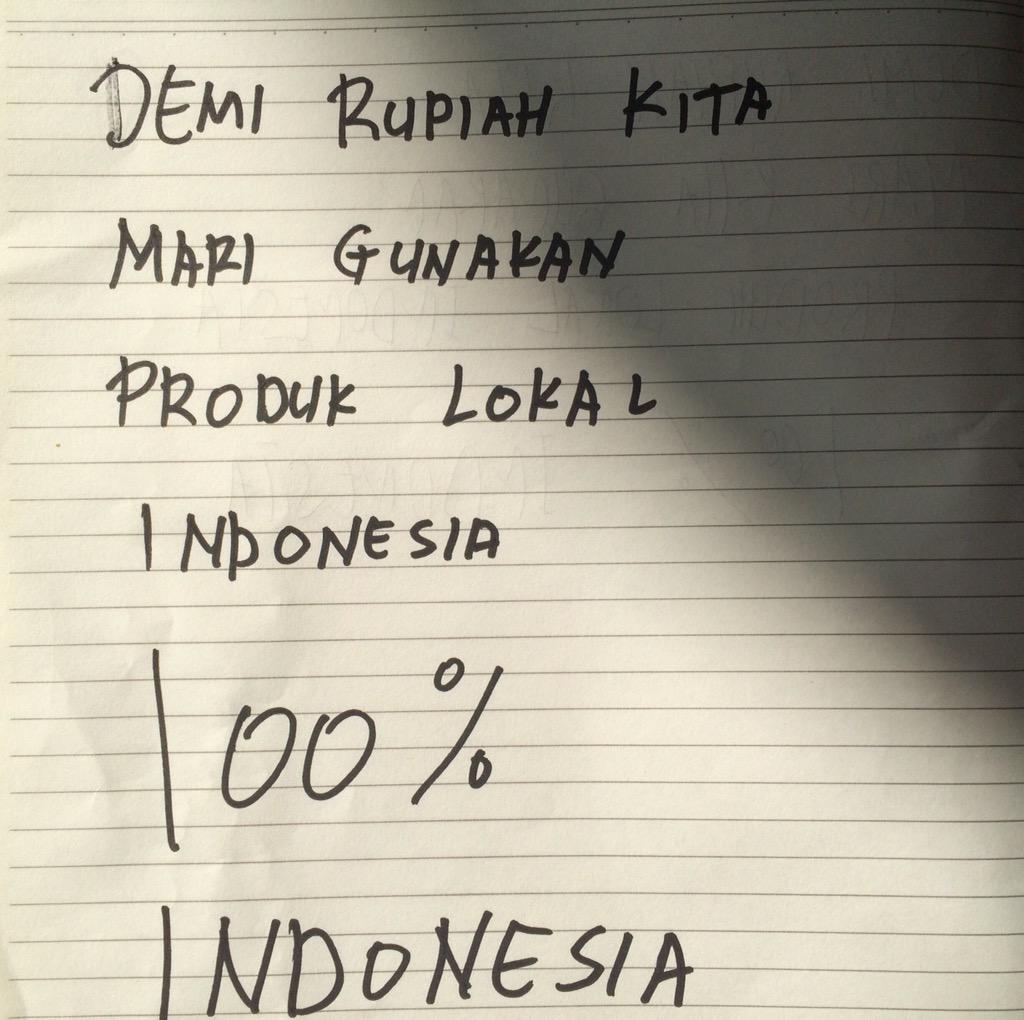 DEMI RUPIAH KITA
MARI GUNAKAN
PRODUK LOKAL
INDONESIA
100%
INDONESIA